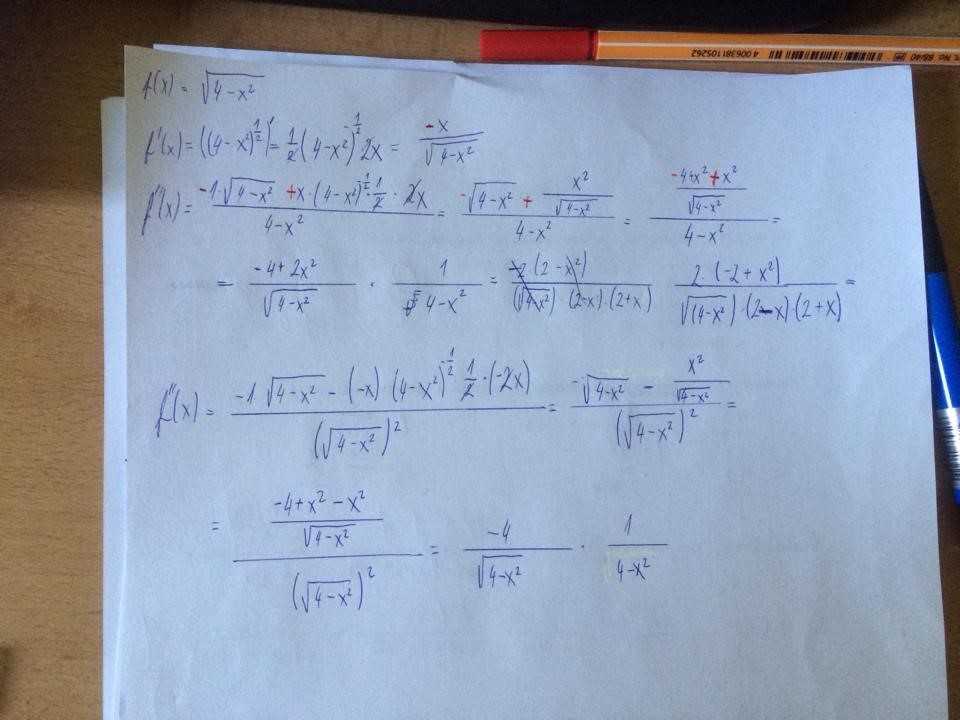 4 006381 105262 Nr. 88/40
f(x) = √(4-x²)
f'(x) = ((4-x²)^(1/2))' = 1/2 (4-x²)^(-1/2) 2x = -x/√(4-x²)
f''(x) = (-1·√(4-x²) + x·(4-x²)^(-1/2)·1/2·2x)/(4-x²) = (-√(4-x²) + x²/√(4-x²))/(4-x²) = ((-4+x²+x²)/√(4-x²))/(4-x²) =
= (-4+2x²)/√(4-x²) · 1/(4-x²) = -2(2-x²)/((√(4-x²))·(2-x)·(2+x)) 2·(-2+x²)/(√(4-x²)·(2-x)·(2+x)) =
f''(x) = (-1·√(4-x²) - (-x)·(4-x²)^(-1/2)·1/2·(-2x))/(√(4-x²))² = (-√(4-x²) - x²/√(4-x²))/(√(4-x²))² =
= ((-4+x²-x²)/√(4-x²))/(√(4-x²))² = -4/√(4-x²) · 1/(4-x²)